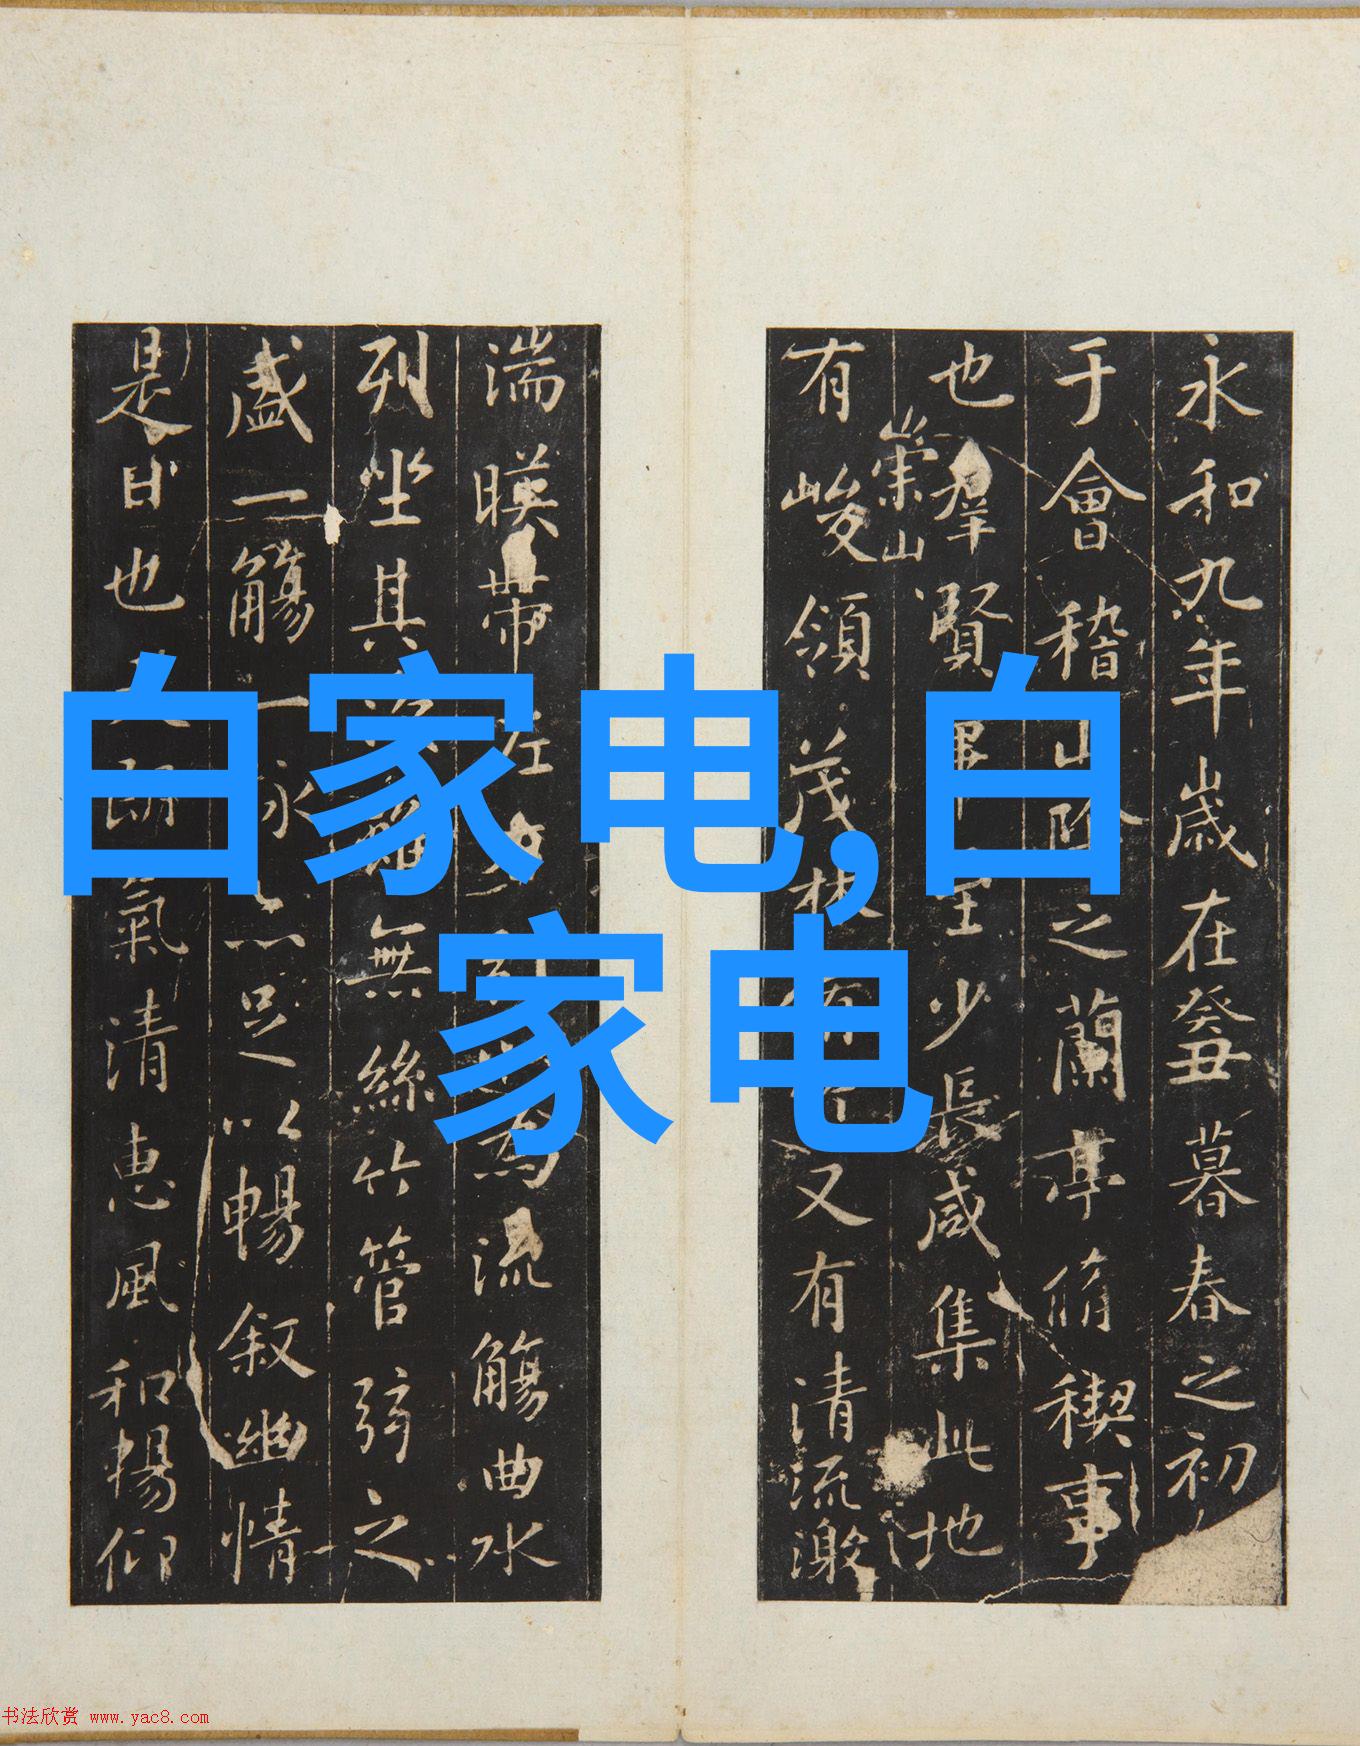 白家电,白
家电
永和九年歲在癸丑暮春之初
于會稽山陰之蘭亭脩禊事
也羣賢畢至少長咸集此地
崇山
有峻領茂林脩竹又有清流激
湍暎帶左右引以為流觴曲水
列坐其次雖無絲竹管弦之
盛一觴一詠亦足以暢敘幽情
是日也天朗氣清惠風和暢仰
书法欣赏 www.yac8.com